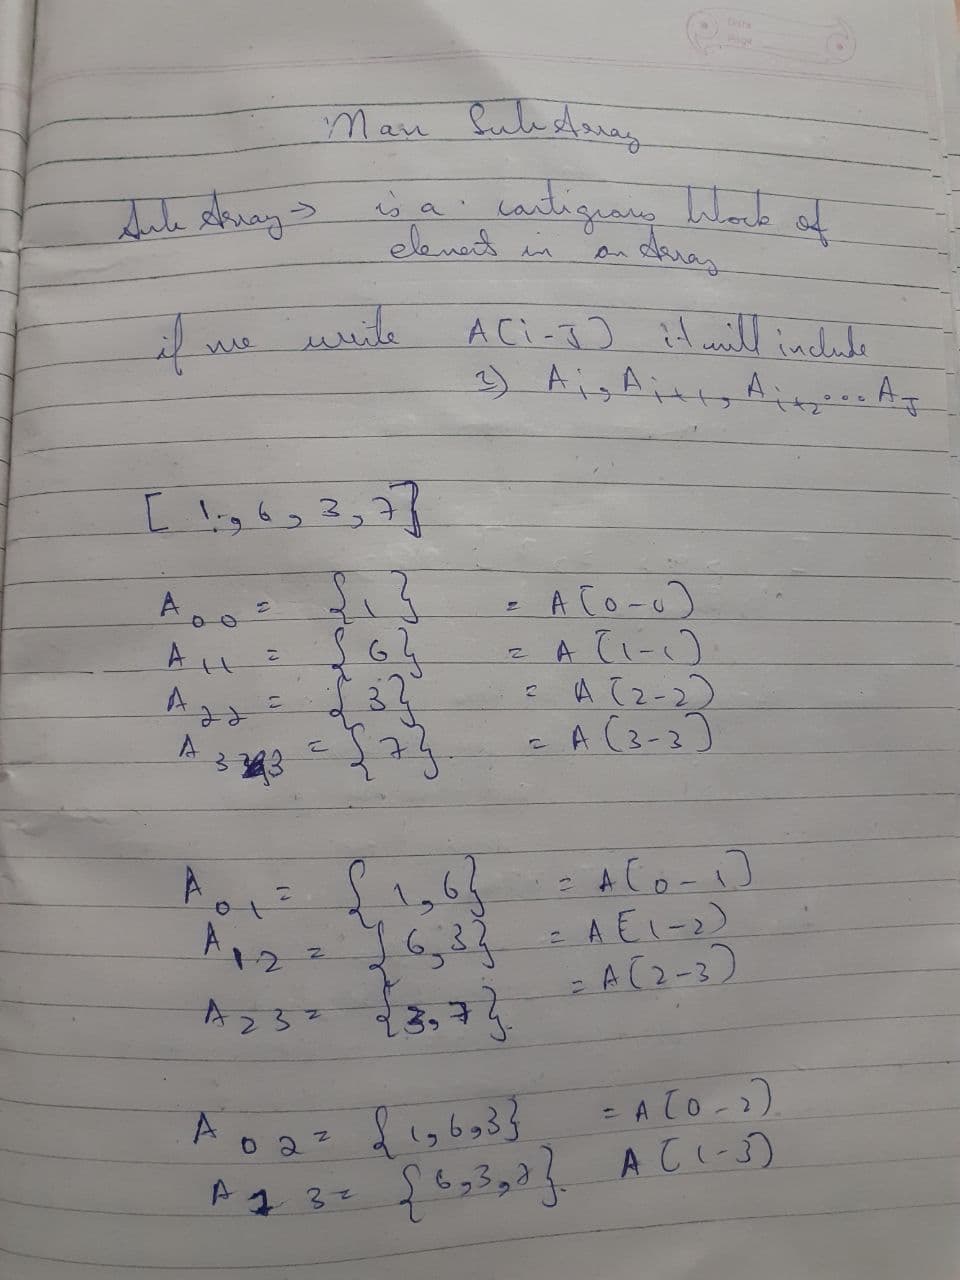 Date
Page
Max Sub Array
Sub Array → is a contiguous block of
element in an Array
if we write A[i-J] it will include
⇒ Ai, Ai+1, Ai+2... AJ
[ 1, 6, 3, 7]
A00 = {1} = A[0-0]
A11 = {6} = A[1-1]
A22 = {3} = A[2-2]
A33 = {7} = A[3-3]
A01 = {1,6} = A[0-1]
A12 = {6,3} = A[1-2]
A23 = {3,7} = A[2-3]
A02 = {1,6,3} = A[0-2]
A13 = {6,3,7} A[1-3]